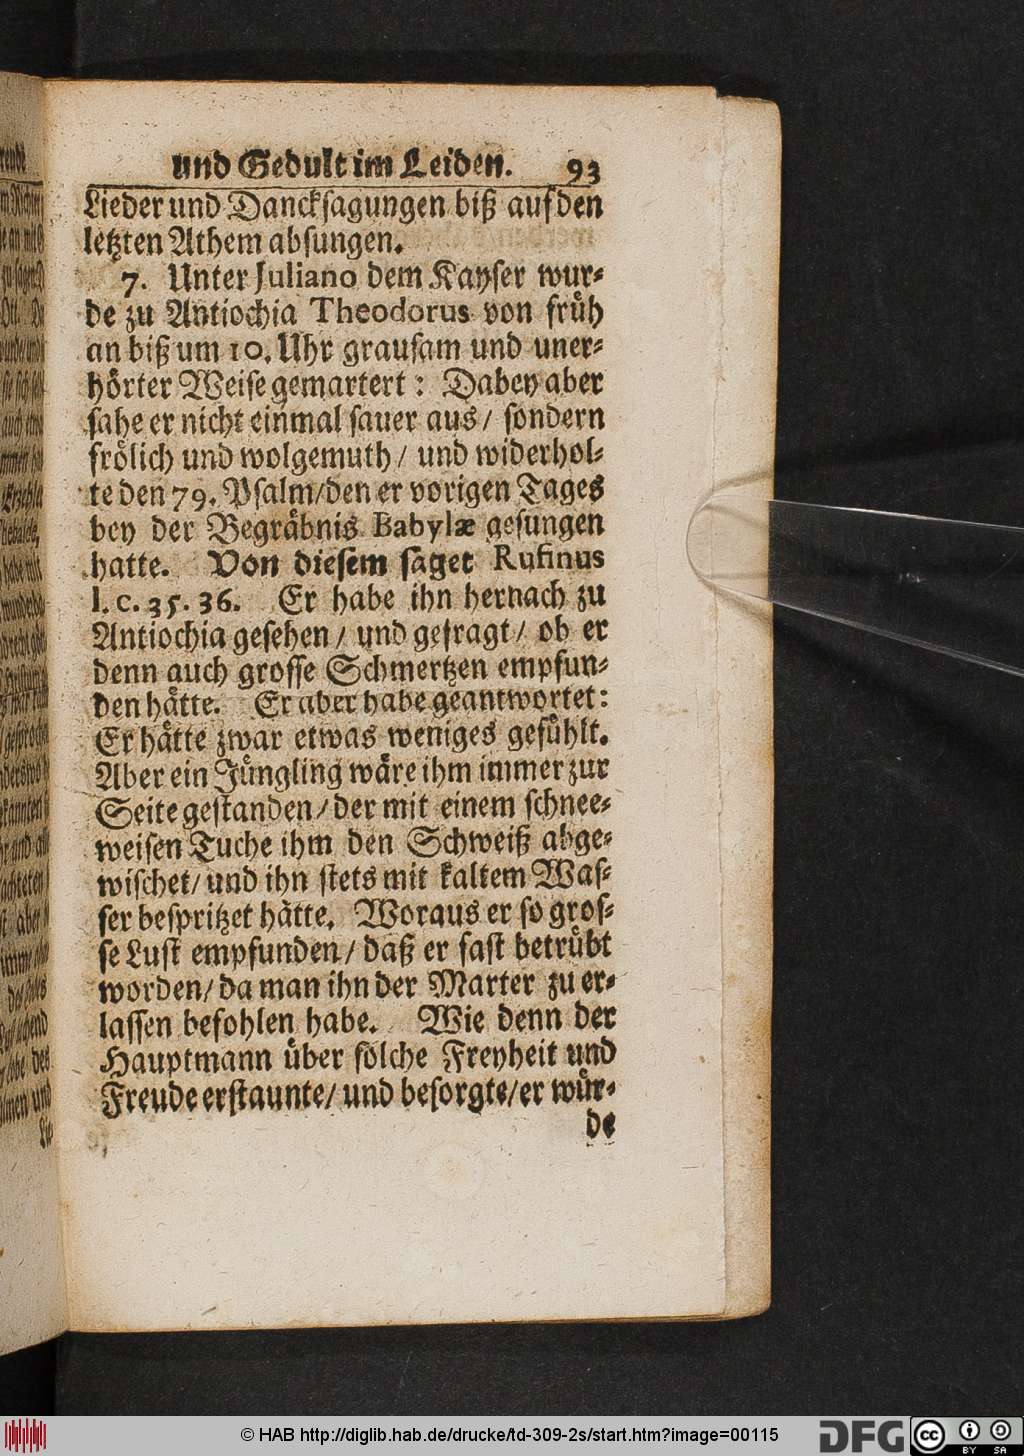 und Gedult im Leiden. 93
Lieder und Dancksagungen biß auf den
letzten Athem absungen.
7. Unter Juliano dem Kayser wur-
de zu Antiochia Theodorus von früh
an biß um 10. Uhr grausam und uner-
hörter Weise gemartert: Dabey aber
sahe er nicht einmal sauer aus/ sondern
frölich und wolgemuth/ und widerhol-
te den 79. Psalm/den er vorigen Tages
bey der Begräbnis Babylæ gesungen
hatte. Von diesem saget Rufinus
l. c. 35. 36. Er habe ihn hernach zu
Antiochia gesehen/ und gefragt/ ob er
denn auch grosse Schmertzen empfun-
den hätte. Er aber habe geantwortet:
Er hätte zwar etwas weniges gefühlt.
Aber ein Jüngling wäre ihm immer zur
Seite gestanden/der mit einem schnee-
weisen Tuche ihm den Schweiß abge-
wischet/ und ihn stets mit kaltem Was-
ser bespritzet hätte. Woraus er so gros-
se Lust empfunden/ daß er fast betrübt
worden/ da man ihn der Marter zu er-
lassen befohlen habe. Wie denn der
Hauptmann über solche Freyheit und
Freude erstaunte/ und besorgte/er wür-
de
© HAB http://diglib.hab.de/drucke/td-309-2s/start.htm?image=00115
DFG
cc BY SA